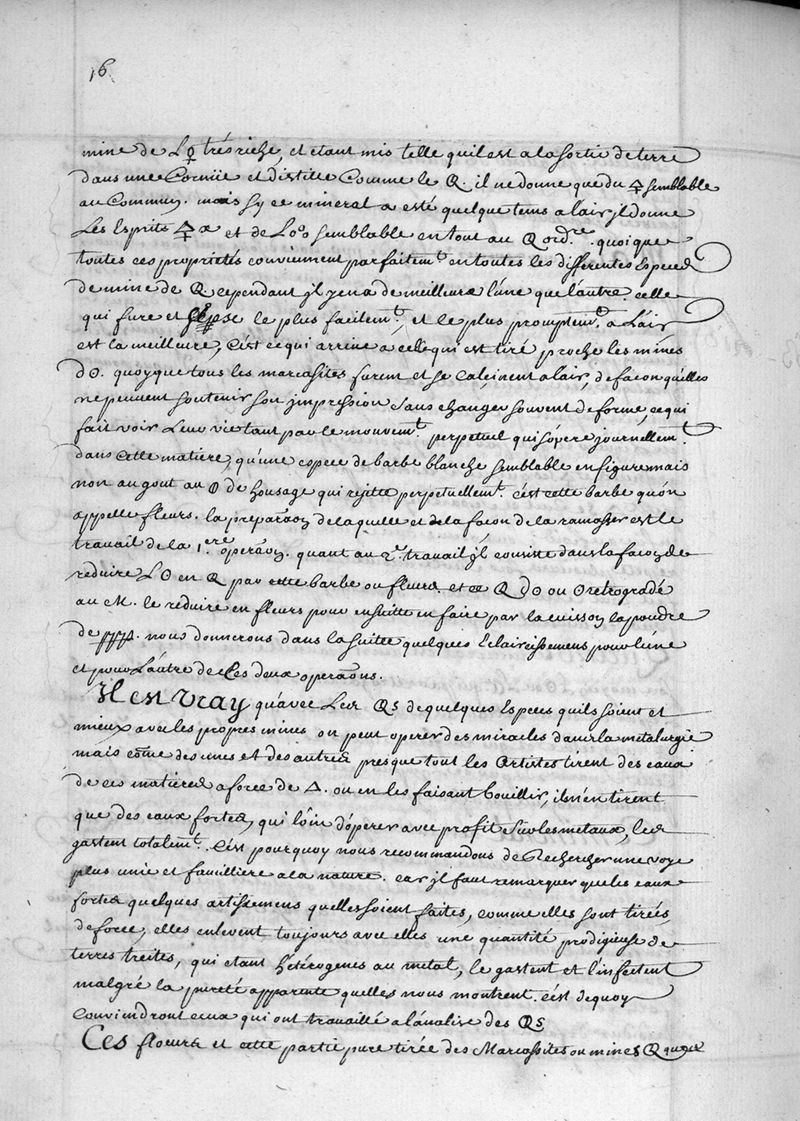 16
mine de L♀ trés riche, et etant mis telle quil est a la sortie de terre
dans une Cornüe et distille Comme le il ne donne que du semblable
au Commun. mais sy ce mineral a esté quelque tems a lair jl donne
Les Esprits et de semblable en tout au ord.re quoique
toutes ces proprietés conviennent parfaitem.t en toutes les differentes Especes
de mine de cependant jl y en a de meilleure l'une que l'autre. celle
qui fuze et le plus facilem.t, et le plus promptem.t a L'air
est la meilleure, C'est ce qui arrive a celle qui est tiré proche les mines
quoyque tous les marcasites fusent et se calçinent a l'air, de facon qu'elles
ne peuvent soutenir son jmpression sans changer souvent de forme, ce qui
fait voir Leur vie tant par le mouvem.t perpetuel qui s'ópere journellem.t
dans Cette matiere, qu'une espece de barbe blanche semblable en figure mais
non au gout au de housage qui rejette perpetuellem.t c'est cette barbe qu'on
appelle fleurs. la preparaõn de laquelle et de la façon de la ramasser est le
travail de la 1.ere operaõn. quant au 2.e travail jl consiste dans la façon de
reduire L en par cette barbe ou fleurs. et ce ou retrogradé
au le réduire en fleurs pour ensuitte en faire par la cuisson la poudre
de nous donnerons dans la suitte quelques Eclaircissemens pour l'une
et pour L'autre de Ces deux operaõns.
Il est Vray qu'avec Les de quelques Especes qu'ils soient et
mieux avec les propres mines on peut operer des miracles dans la metalurgie
mais cõme des unes et des autres presque tout les Artistes tirent des eaux
de ces matieres a force de △. ou en les faisant bouillir, ils n'en tirent
que des eaux fortes, qui lóin d'óperer avec profit sur les metaux, les
gastent totalem.t. C'est pourquoy nous recommandons de Rechercher une voye
plus unie et familliere a la nature. car jl faut remarquer que les eaux
fortes quelques artissemens quelles soient faites, comme elles sont tirées
de force, elles enlevent toujours avec elles une quantité prodigieuse de
terres qui etant hétérogenes au metal, le gastent et l'infectent
malgré la pureté apparente quelles nous montrent. c'est de quoy
Conviendront ceux qui ont travaillé a l'ánalise des
Ces et cette partie pure tirée des Marcassites ou mines